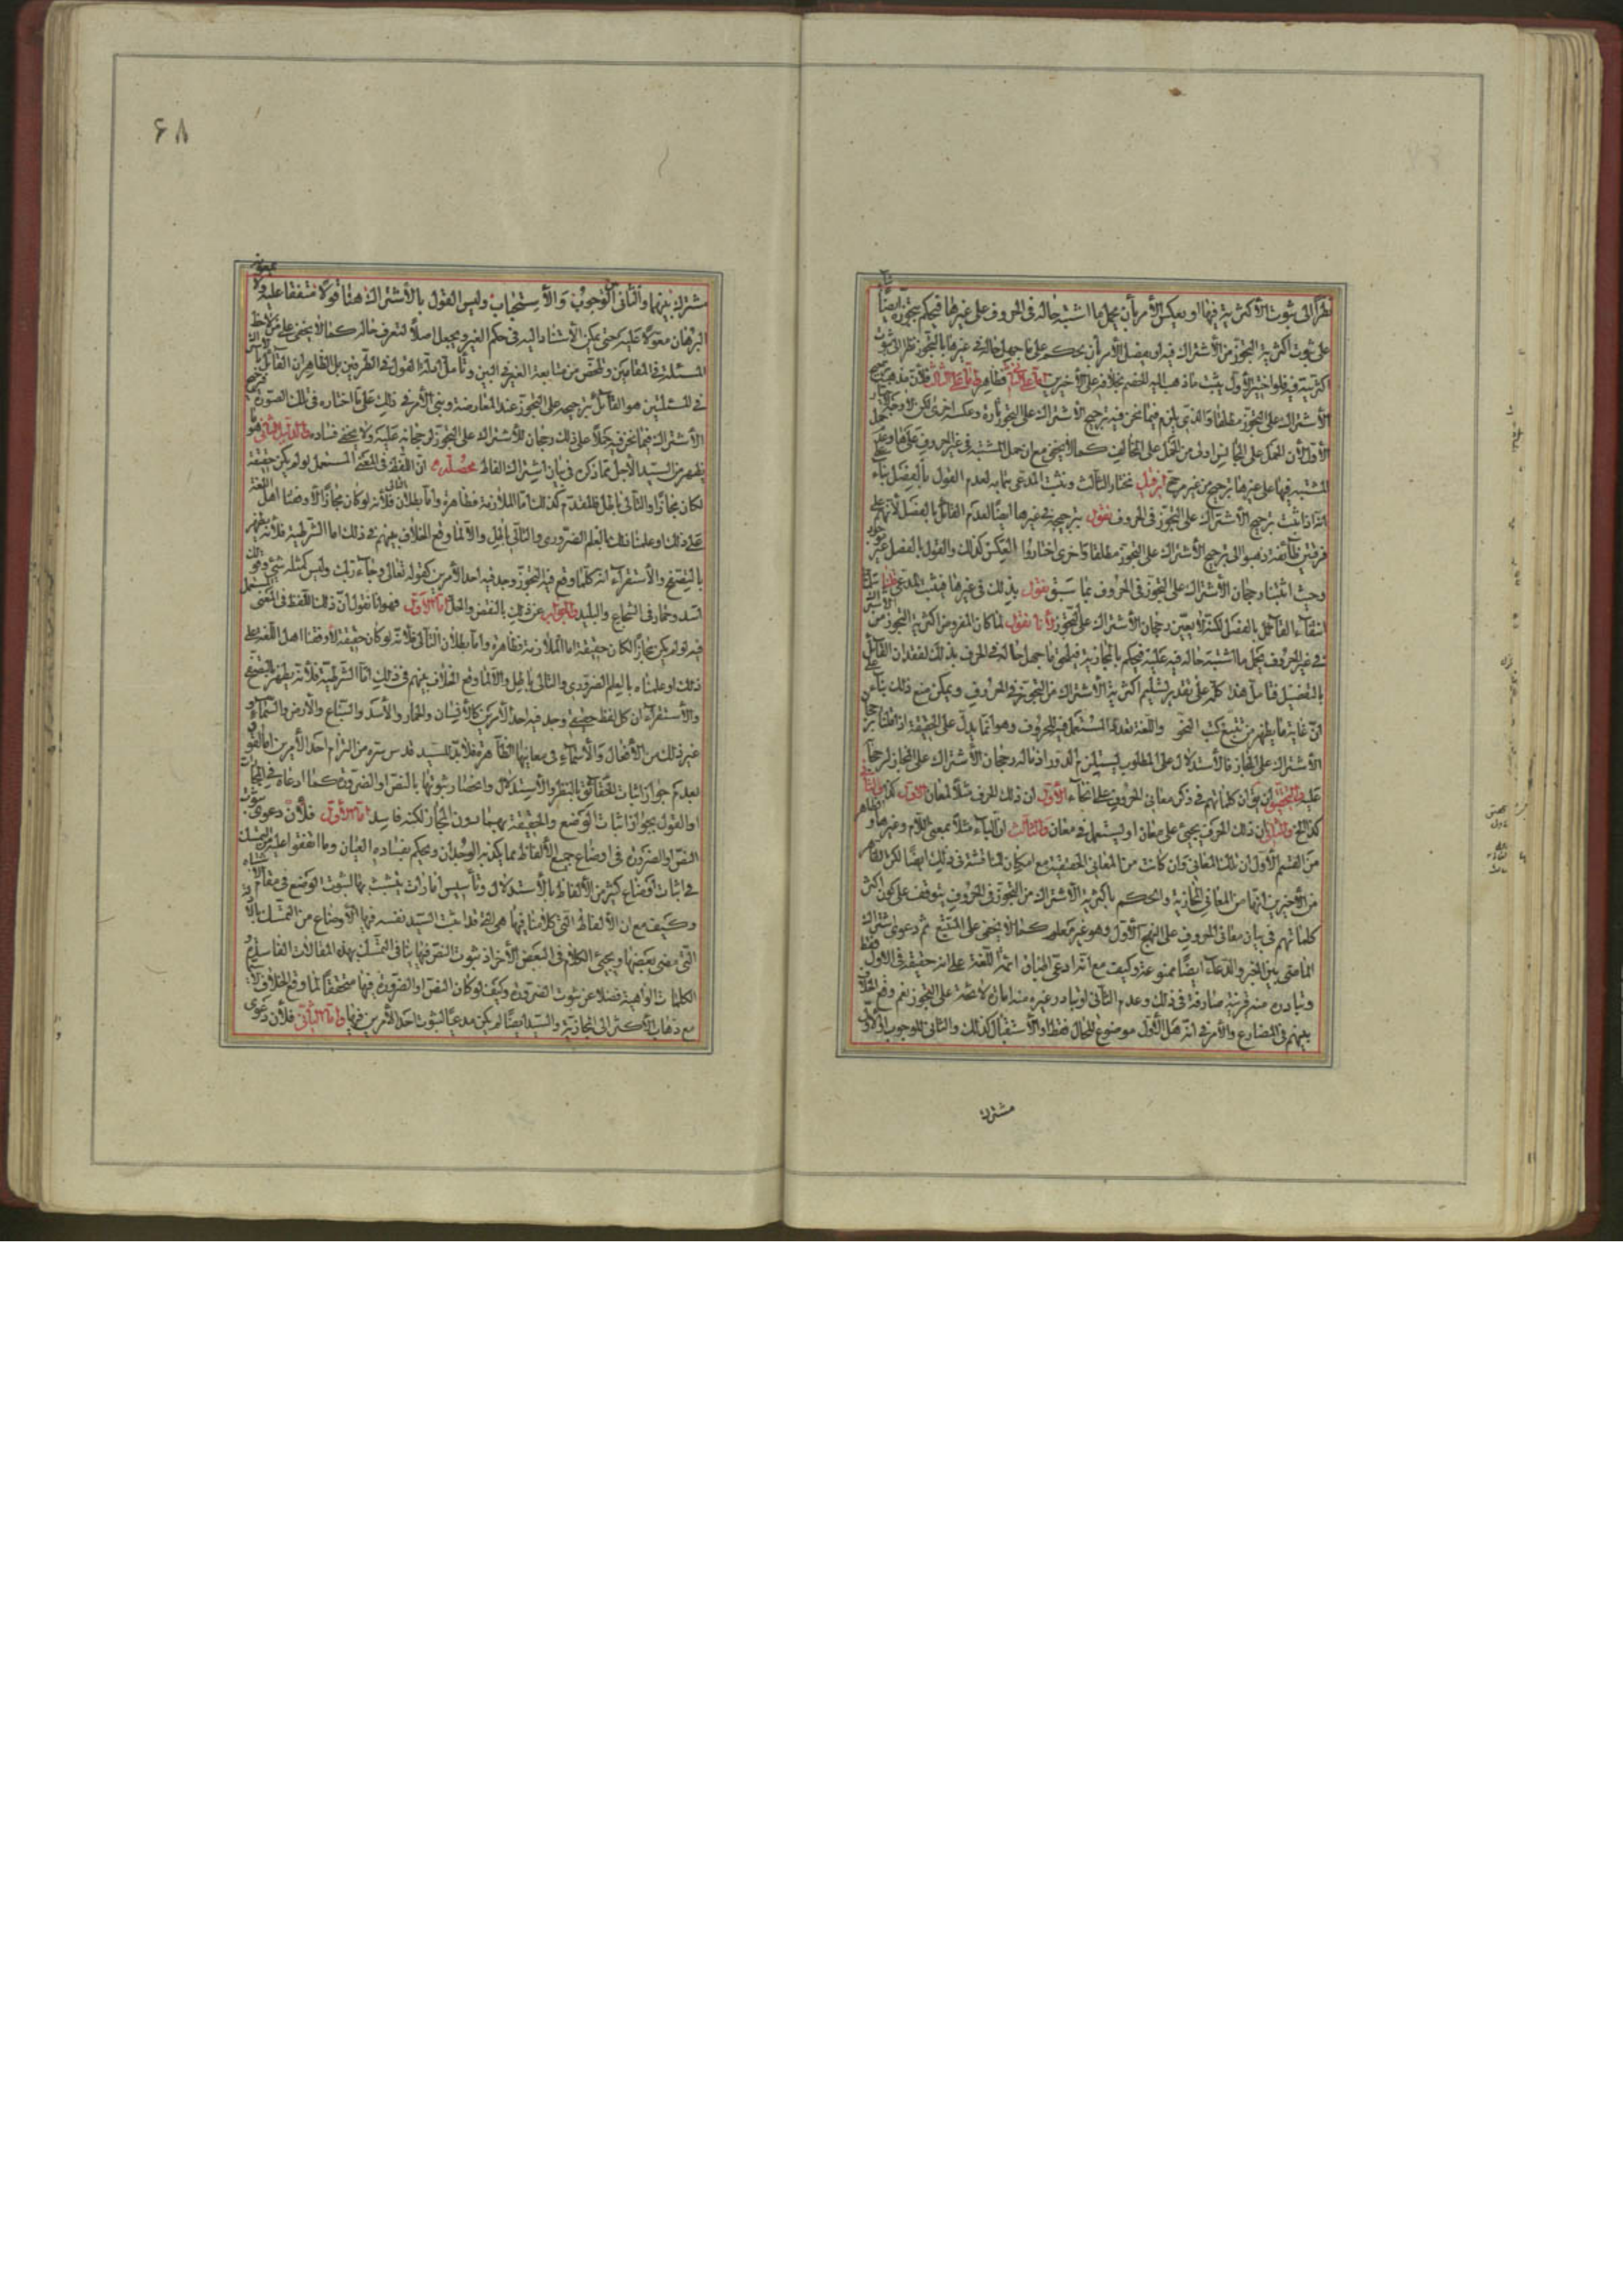 نظرًا الى ثبوت الأكثرية فيها او بعكس الأمر بأن يحمل ما اشتبه حاله في الحروف على غيرها فيحكم بتجوزه ايضًا
على ثبوت اكثرية التجوز من الأشتراك فيه او يفصل الأمر بأن يحكم على ما جهل حاله في غيرها بالتجوز نظرا الى ثبوت
اكثريته فيه فلو اختير الأول يثبت ما ذهب اليه الخصم بخلافه على الأخيرين فظاهر فلأن مذهبه ترجيح
الأشتراك على التجوز مطلقا والذي يلزم فيما نحن فيه ترجيح الأشتراك على التجوز تارة وعكسه اخرى لكن
الأول لأن الحمل على المجانس اولى من الحمل على المخالف كما لا يخفى مع ان حمل المشتبه في غير الحروف عليها وعلى
المشتبه فيها على غيرها ترجيح من غير مرجح فان قيل نختار الثالث ونثبت المدعى بتمامه لعدم القول بالفصل بناء
انه اذا ثبت ترجيح الأشتراك على التجوز في الحروف نقول بترجيحه في غيرها ايضًا لعدم القائل بالفصل لأنهم على
فرقتين طائفة ذهبوا الى ترجيح الأشتراك على التجوز مطلقا واخرى اختاروا العكس كذلك والقول بالفصل غير موجود
وحيث اثبتنا رجحان الأشتراك على التجوز في الحروف بما سبق نقول بذلك في غيرها فيثبت المدعى قلنا سلمنا
انتفاء القائل بالفصل لكنه لا يعين رجحان الأشتراك على التجوز لأنا نقول لما كان المفروض اكثرية التجوز من
في غير الحروف يحمل ما اشتبه حاله فيه عليه فيحكم بالمجازية فيلحق ما جهل حاله في الحرف بذلك لفقدان القائل
بالتفصيل فتأمل هذا كله على تقدير تسليم اكثرية الأشتراك من التجوز في الحروف ويمكن منع ذلك بناء على
انّ غاية ما يظهر من تتبع كتب النحو واللغة تعدد المستعمل فيه للحروف وهو انما يدل على الحقيقة اذا قلنا برجحان
الأشتراك على المجاز فالأستدلال على المطلوب ليستلزم الدور اذ مآله رجحان الأشتراك على المجاز لرجحانه
عليه والتحقيق ان يقال ان كلماتهم في ذكر معاني الحروف على انحاء الأول ان ذلك الحرف مثلًا لمعان الأول كذا والثاني
كذا الخ والثاني ان ذلك الحرف يجيئ على معان او يستعمل في معان والثالث ان الباء مثلًا بمعنى اللام وغيرها والظاهر
من القسم الأول ان تلك المعاني وان كانت من المعاني الحقيقية مع امكان المناقشة في ذلك ايضًا لكن الظاهر
من الأخيرين انها من المعاني المجازية والحكم باكثرية الأشتراك من التجوز في الحروف يتوقف على كون اكثر
كلماتهم في بيان معاني الحروف على النهج الأول وهو غير معلوم كما لا يخفى على المتتبع ثم دعوى اشتراك
الماضي بين الخبر والدعاء ايضًا ممنوعة وكيف مع انه ادعى اطباق ائمة اللغة على انه حقيقة في الأول فقط
وتبادره منه قرينة صارفة في ذلك وعدم الثاني او تبادر غيره منه امارة لائحة على التجوز نعم وقع الخلاف
بينهم في المضارع والأمر في انه هل الأول موضوع للحال فقط او الأستقبال كذلك والثاني للوجوب او الأول
مشترك
۶۸
مشترك بينهما والثاني الوجوب والأستحباب وليس القول بالأشتراك هنا قولًا متفقا عليه ولا
البرهان معوّلًا عليه حتى يمكن الأستناد اليه في حكم الغير ويجعل اصلًا لتعرف حاله كما لا يخفى على من لاحظ
المسئلة في المقامين وتفحص من متابعة الغير في البين وتأمل ادلة القول في الطرفين بل الظاهر ان القائل
في المسئلتين هو القائل بترجيحه على التجوز عند المعارضة وبنى الأمر في ذلك على ما اختاره في تلك الصورة
الأشتراك فيما نحن فيه حملًا على ذلك رجحان للأشتراك على التجوز لرجحانه عليه ولا يخفى فساده
يظهر من السيد الأجل مما ذكره في بيان اشتراك الفاظ محصله انّ اللفظ في المعنى المستعمل لو لم يكن حقيقة
لكان مجازًا والتالي باطل فالمقدم كذلك اما الملازمة فظاهرة واما بطلان التالي فلأنه لو كان مجازًا لأوقفنا اهل اللغة
على ذلك او علمنا ذلك بالعلم الضروري والتالي باطل والا لما وقع الخلاف بينهم في ذلك اما الشرطية فلأنه يظهر
بالتصفح والأستقراء انه كلما وقع فيه التجوز وجد فيه احد الأمرين كقوله تعالى وجاء ربك وليس كمثله شيئ وقولك
اسد وحمار في الشجاع والبليد والجواب عن ذلك بالنقض والحل اما الأول فهو انا نقول انّ ذلك اللفظ في المعنى المستعمل
فيه لو لم يكن مجازًا لكان حقيقة اما الملازمة فظاهرة واما بطلان التالي فلأنه لو كان حقيقة لأوقفنا اهل اللغة على
ذلك او علمناه بالعلم الضروري والتالي باطل والا لما وقع الخلاف بينهم في ذلك اما الشرطية فلأنه يظهر بالتصفح
والأستقراء ان كل لفظ حقيقي وجد فيه احد الأمرين كالأنسان والحمار والأسد والسباع والأرض والسماء و
غير ذلك من الأفعال والأسماء في معانيها الظاهرة فلابدّ للسيد قدس سره من التزام احد الأمرين اما القول
بعدم جواز اثبات الحقائق بالنظر والأستدلال وانحصار ثبوتها بالنص او الضرورة كما ادعاه في المجازات
او القول بجواز اثبات الوضع والحقيقة بهما دون المجاز لكنه فاسد اما الأول فلأن دعوى ثبوت
النص او الضرورة في اوضاع جميع الألفاظ مما يكذبه الوجدان ويحكم بفساده العيان وما اتفقوا عليه من التمسك
في اثبات اوضاع كثير من الألفاظ بالأستدلال وتأسيس امارات يتشبث بها لثبوت الوضع في مقام الأشتباه
وكيف مع ان الألفاظ التي كلامنا فيها هي التي قد اثبت السيد نفسه فيها الأوضاع من التمسك بالأدلة
التي مضى بعضها ويجيئ الكلام في البعض الأخر اذ ثبوت النص فيها ينافي التمسك بهذه المقالات الفاسدة و
الكلمات الواهية فضلا عن ثبوت الضرورة وكيف لو كان النص او الضرورة فيها متحققًا لما وقع الخلاف لا سيما
مع ذهاب الأكثر الى المجازية والسيد ايضًا لم يكن مدعيًا لثبوت احد الأمرين فيها واما الثاني فلأن دعوى